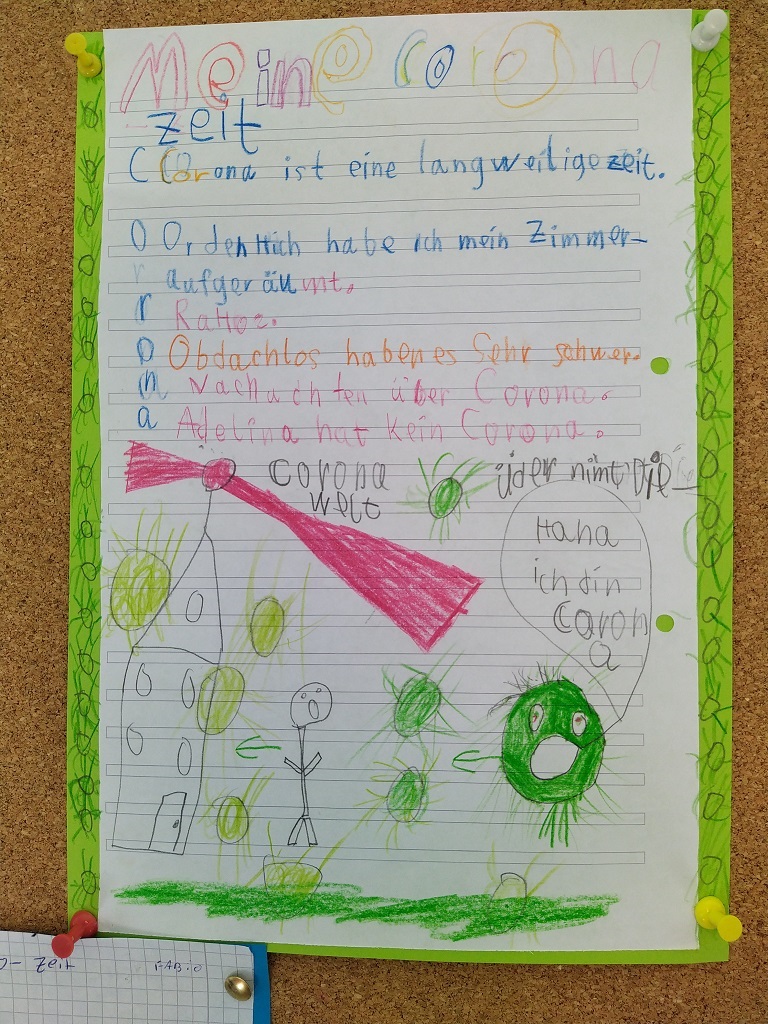 Meine Corona
zeit
C Corona ist eine langweilige zeit.
O O, dehttich habe ich mein Zimmer-
r aufgeräumt.
r
O Obdachlos haben es Sehr schwer.
n Nachachten über Corona.
a Adelina hat kein Corona.
Corona üder nimt Die
welt
Haha
ich din
Caron
a
zeit FABiO